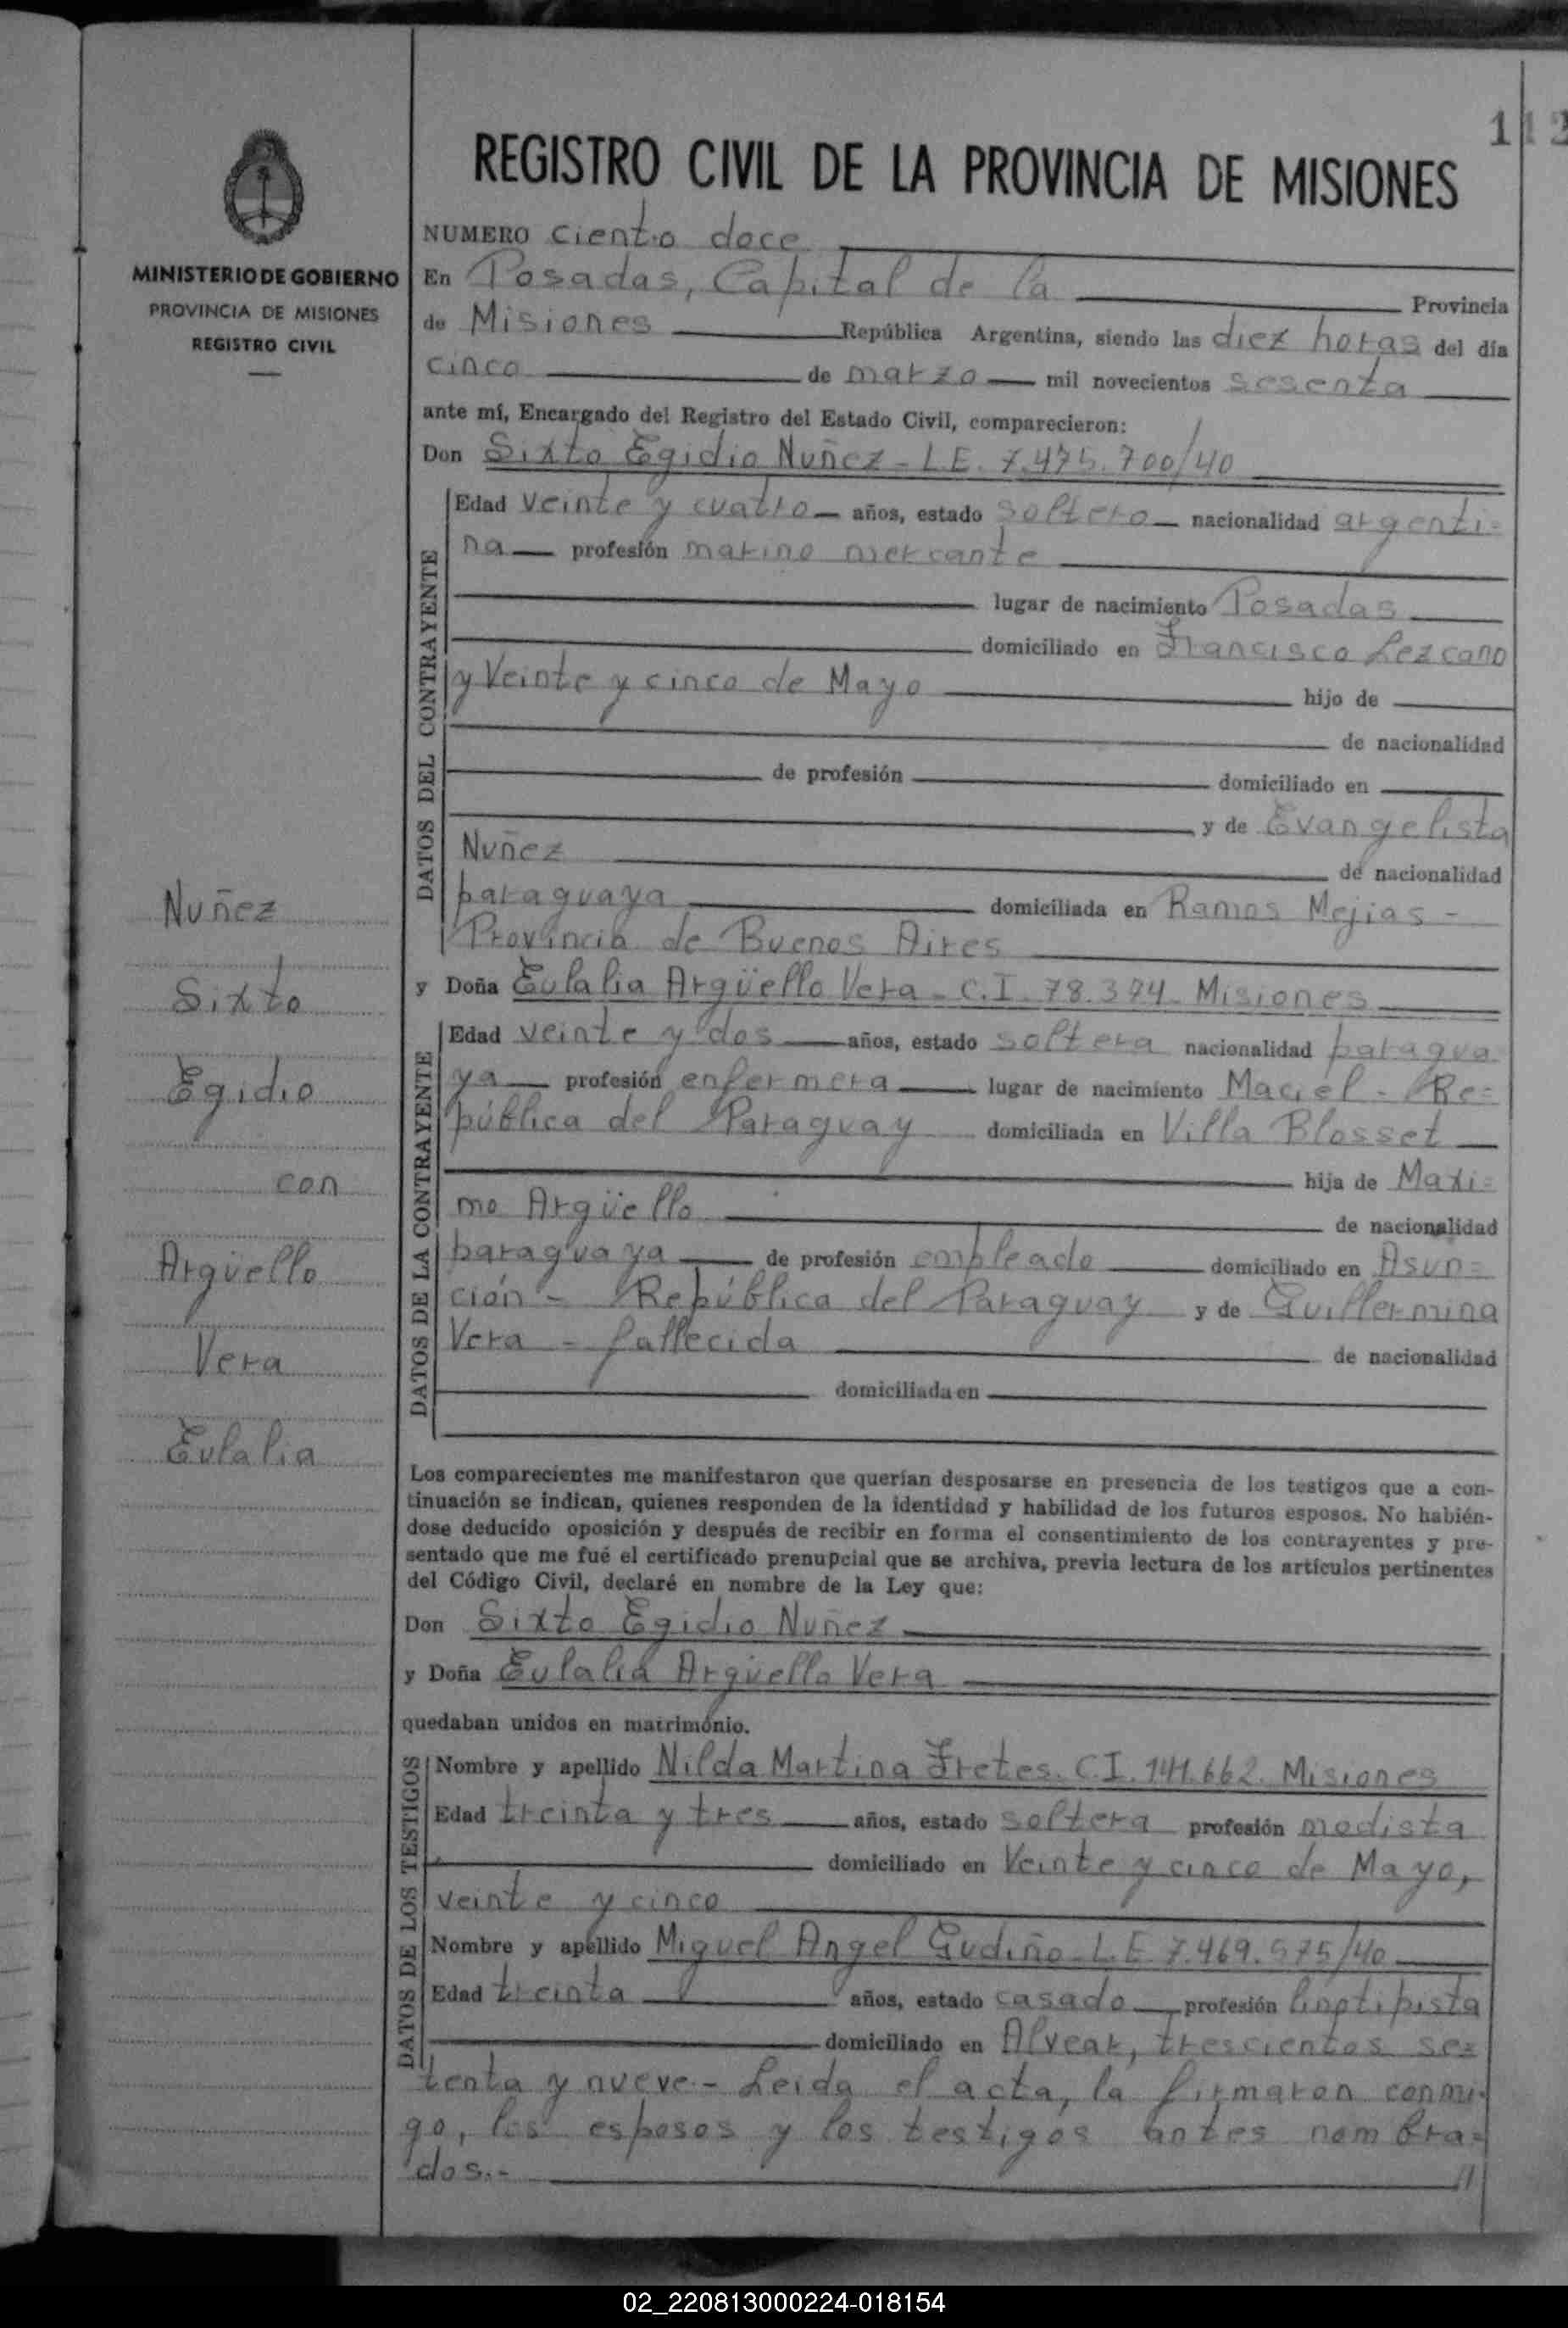 112
REGISTRO CIVIL DE LA PROVINCIA DE MISIONES
MINISTERIO DE GOBIERNO
PROVINCIA DE MISIONES
REGISTRO CIVIL
NUMERO ciento doce
En Posadas, Capital de la Provincia
de Misiones República Argentina, siendo las diez horas del día
cinco de marzo mil novecientos sesenta
ante mí, Encargado del Registro del Estado Civil, comparecieron:
Don Sixto Egidio Nuñez - L.E. 7.475.700/40
DATOS DEL CONTRAYENTE
Edad veinte y cuatro años, estado soltero nacionalidad argenti=
na profesión marino mercante
lugar de nacimiento Posadas
domiciliado en Francisco Lezcano
y Veinte y cinco de Mayo hijo de
de nacionalidad
de profesión domiciliado en
y de Evangelista
Nuñez de nacionalidad
paraguaya domiciliada en Ramos Mejias -
Provincia de Buenos Aires
y Doña Eulalia Argüello Vera - C.I. 78.374 - Misiones
DATOS DE LA CONTRAYENTE
Edad veinte y dos años, estado soltera nacionalidad paragua
ya profesión enfermera lugar de nacimiento Maciel - Re=
pública del Paraguay domiciliada en Villa Blosset
hija de Maxi=
mo Argüello de nacionalidad
paraguaya de profesión empleado domiciliado en Asun=
ción - República del Paraguay y de Guillermina
Vera - fallecida de nacionalidad
domiciliada en
Nuñez
Sixto
Egidio
con
Argüello
Vera
Eulalia
Los comparecientes me manifestaron que querían desposarse en presencia de los testigos que a con-
tinuación se indican, quienes responden de la identidad y habilidad de los futuros esposos. No habién-
dose deducido oposición y después de recibir en forma el consentimiento de los contrayentes y pre-
sentado que me fué el certificado prenupcial que se archiva, previa lectura de los artículos pertinentes
del Código Civil, declaré en nombre de la Ley que:
Don Sixto Egidio Nuñez
y Doña Eulalia Argüello Vera
quedaban unidos en matrimónio.
DATOS DE LOS TESTIGOS
Nombre y apellido Nilda Martina Fretes. C.I. 141.662. Misiones
Edad treinta y tres años, estado soltera profesión modista
domiciliado en Veinte y cinco de Mayo,
veinte y cinco
Nombre y apellido Miguel Angel Gudiño - L.E. 7.469.575/40
Edad treinta años, estado casado profesión linotipista
domiciliado en Alvear, trescientos se=
tenta y nueve.- Leida el acta, la firmaron conmi-
go, los esposos y los testigos antes nombra=
dos.-
02_220813000224-018154